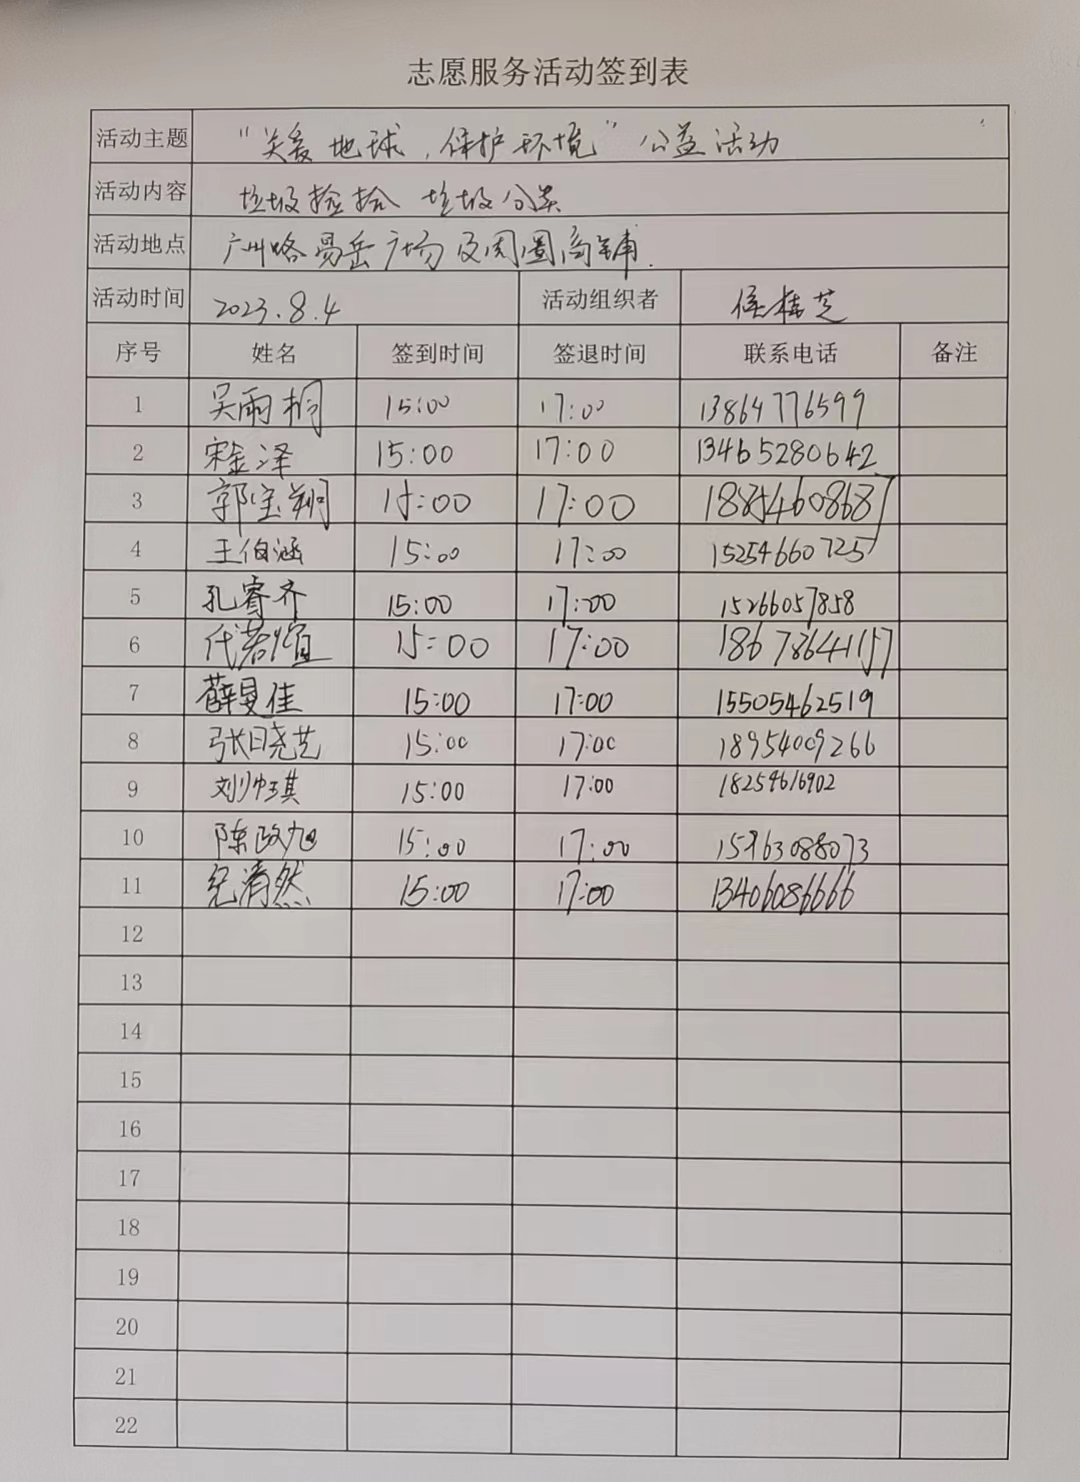 志愿服务活动签到表
活动主题 “关爱地球,保护环境”公益活动
活动内容 垃圾捡拾 垃圾分类
活动地点 广州路 岳广场及周围商铺.
活动时间 2023.8.4 活动组织者 侯桂芝
序号 姓名 签到时间 签退时间 联系电话 备注
1 吴雨桐 15:00 17:00 13864776599
2 宋金泽 15:00 17:00 13465280642
3 郭宝翔 15:00 17:00 18854608687
4 王伯涵 15:00 17:00 15254660725
5 孔睿齐 15:00 17:00 15266057858
6 代若煊 15:00 17:00 18678641157
7 薛旻佳 15:00 17:00 15505462519
8 张晓艺 15:00 17:00 18954009266
9 刘帅琪 15:00 17:00 18254616902
10 陈政旭 15:00 17:00 15963088073
11 纪清然 15:00 17:00 13406086666
12
13
14
15
16
17
18
19
20
21
22